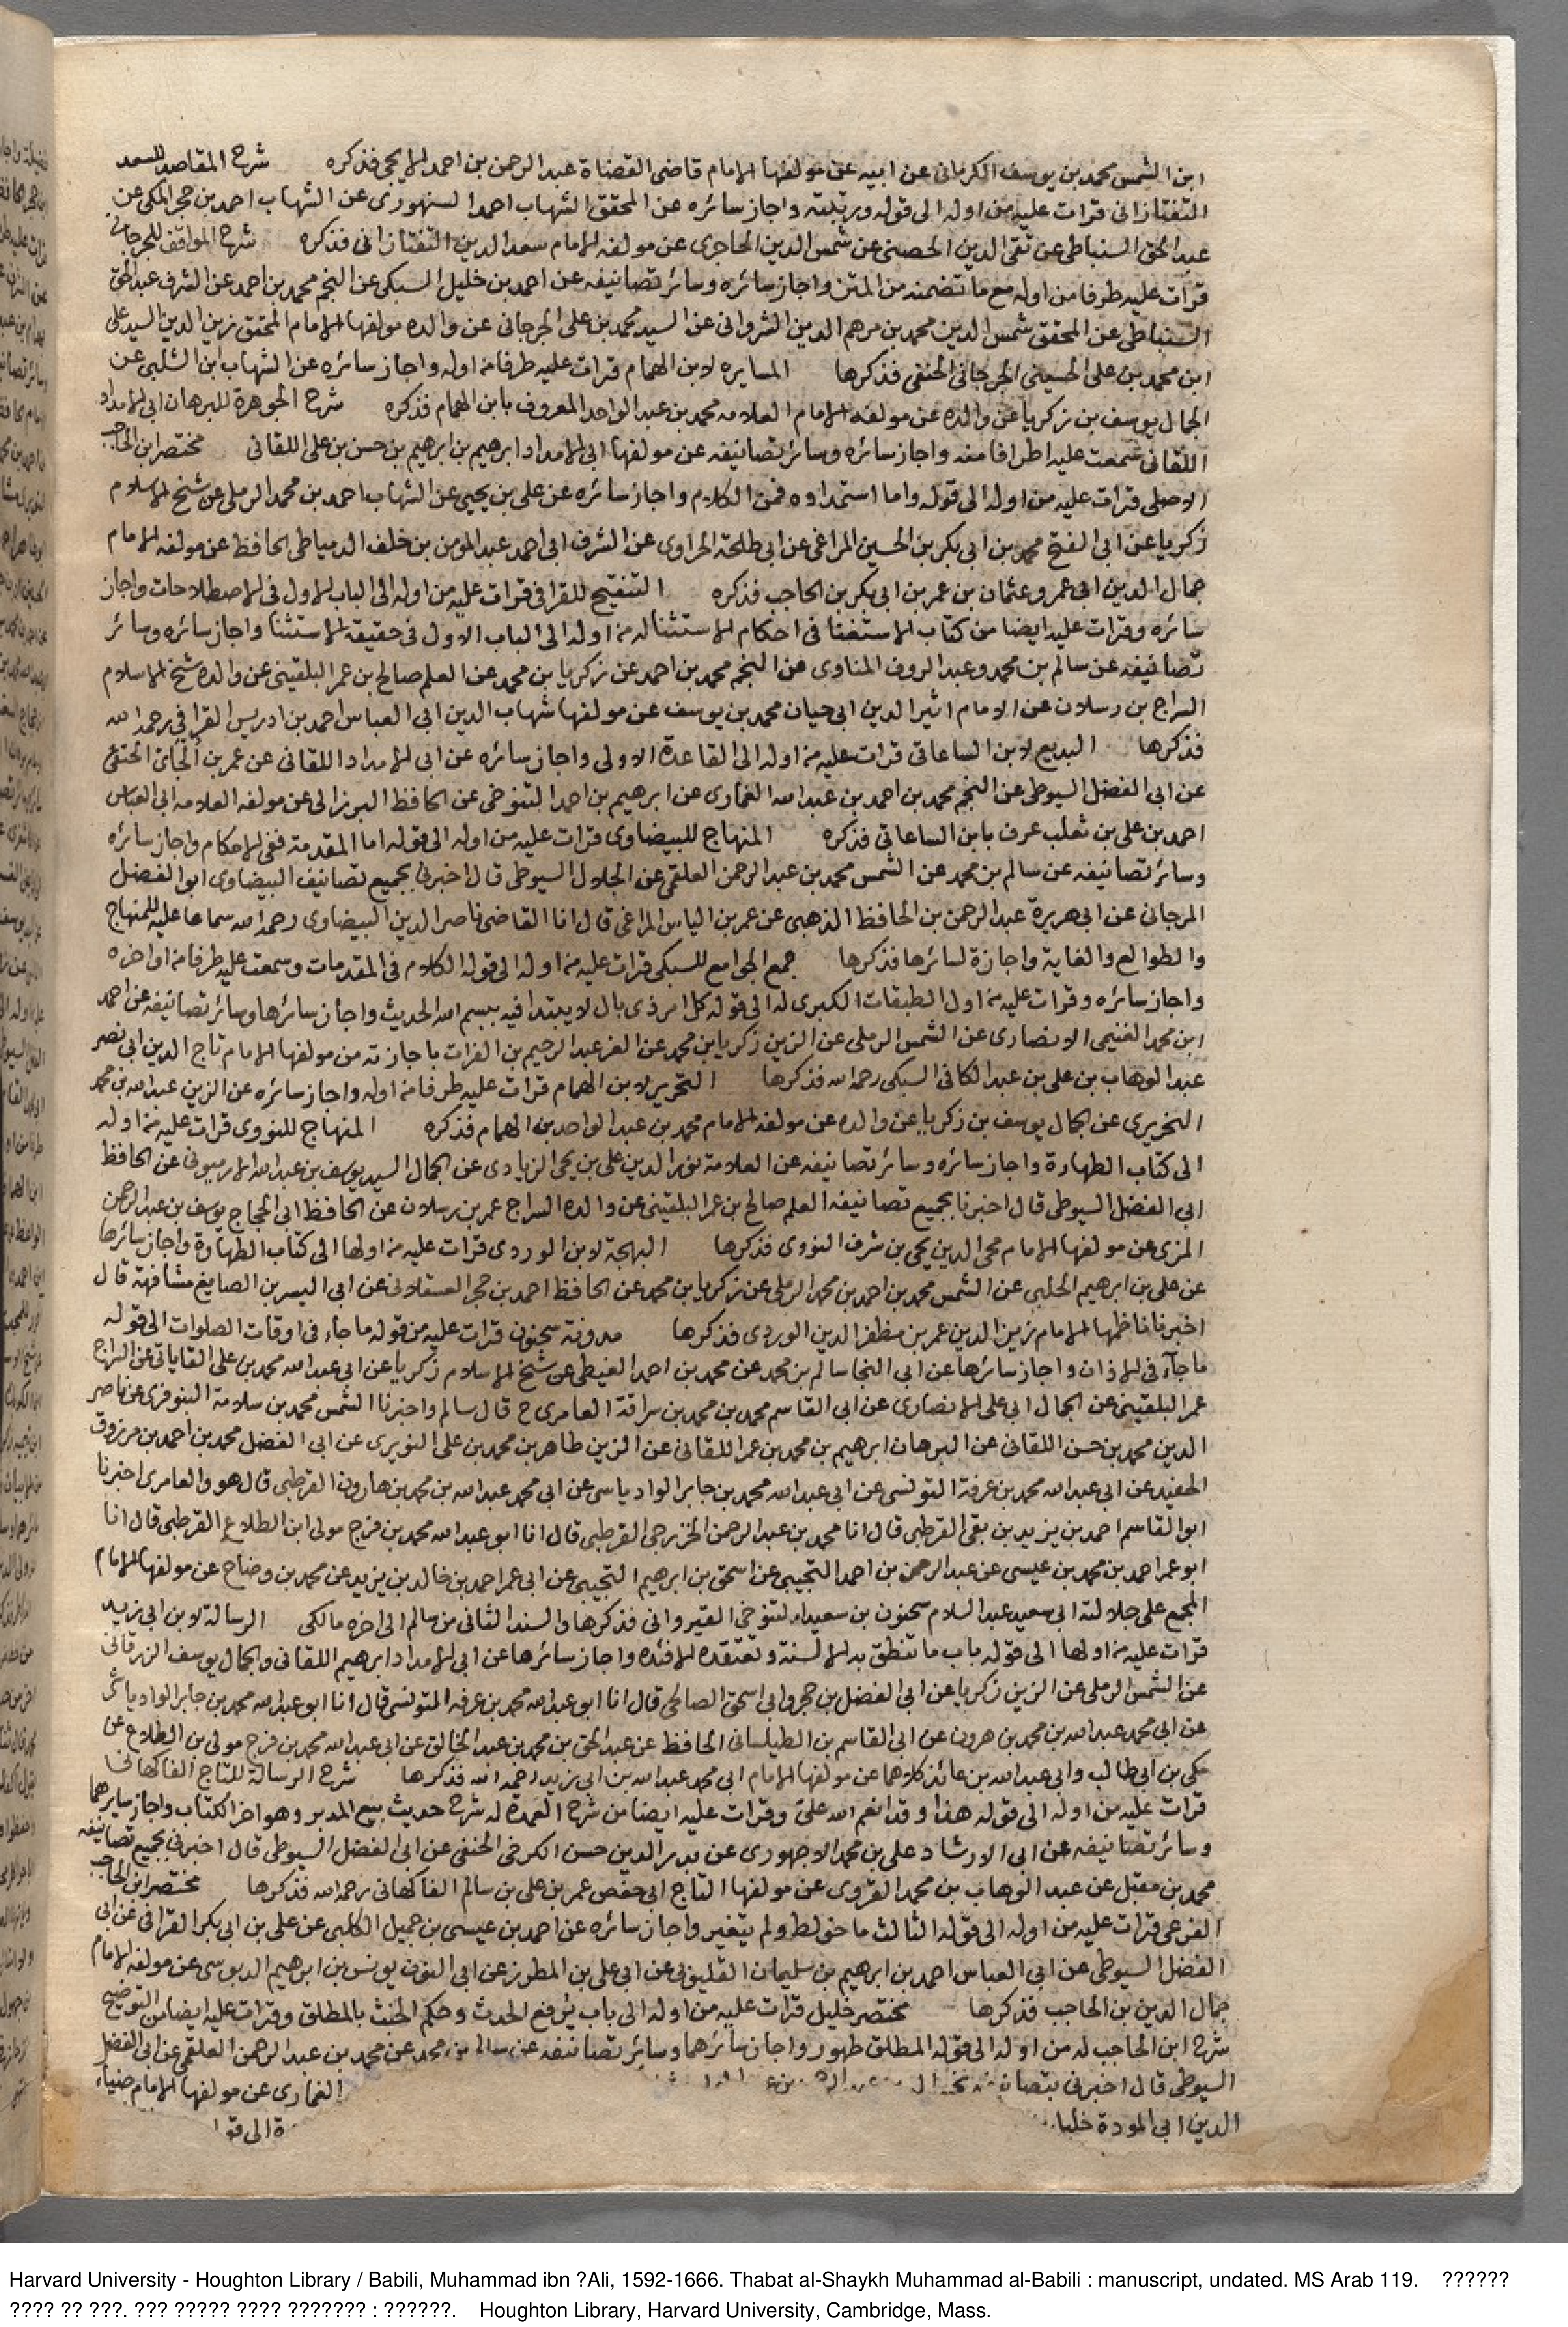 ابن الشمس محمد بن يوسف الكرمانى عن ابيه عن مولفها الامام قاضى القضاة عبد الرحمن بن احمد الايجى فذكره شرح المقاصد للسعد
التفتازانى قرات عليه من اوله الى قوله ورتبته واجاز سائره عن المحقق الشهاب احمد السنهورى عن الشهاب احمد بن حجر المكى عن
عبد الحق السنباطى عن تقى الدين الحصنى عن شمس الدين الحاجرى عن مولفه الامام سعد الدين التفتازانى فذكره شرح المواقف للجرجانى
قرات عليه طرفا من اوله مع ما تضمنه من المتن واجاز سائره وسائر تصانيفه عن احمد بن خليل السبكى عن النجم محمد بن احمد عن الشرف عبد الحق
السنباطى عن المحقق شمس الدين محمد بن مرهم الدين الشروانى عن السيد محمد بن على الجرجانى عن والده مولفها الامام المحقق زين الدين السيد على
ابن محمد بن على الحسينى الجرجانى الحنفى فذكرها المسايره لابن الهمام قرات عليه طرفا من اوله واجاز سائره عن الشهاب ابن الشلبى عن
الجمال يوسف بن زكريا عن والده عن مولفه الامام العلامه محمد بن عبد الواحد المعروف بابن الهمام فذكره شرح الجوهرة للبرهان ابى الامداد
اللقانى سمعت عليه اطرافا منه واجاز سائره وسائر تصانيفه عن مولفها ابى الامداد ابرهيم بن ابرهيم بن حسن بن على اللقانى مختصر ابن الحاجب
الاصلى قرات عليه من اوله الى قوله واما استمداوه فمن الكلام واجاز سائره عن على بن يحيى عن الشهاب احمد بن محمد الرملى عن شيخ الاسلام
زكريا عن ابى الفتح محمد بن ابى بكر بن الحسين المراغى عن ابى طلحة الحراوى عن الشرف ابى احمد عبد المومن بن خلف الدمياطى الحافظ عن مولفه الامام
جمال الدين ابى عمرو عثمان بن عمر بن ابى بكر بن الحاجب فذكره التنقيح للقرافى قرات عليه من اوله الى الباب الاول فى الاصطلاحات واجاز
سائره وقرات عليه ايضا من كتاب الاستغنا فى احكام الاستثنا له من اوله الى الباب الاول فى حقيقة الاستثنا واجاز سائره وسائر
تصانيفه عن سالم بن محمد وعبد الروف المناوى عن النجم محمد بن احمد عن زكريا بن محمد عن العلم صالح بن عمر البلقينى عن والده شيخ الاسلام
السراج بن رسلان عن الامام اثير الدين ابى حيان محمد بن يوسف عن مولفها شهاب الدين ابى العباس احمد بن ادريس القرافى رحمه الله
فذكرها البديع لابن الساعاتى قرات عليه من اوله الى القاعدة الاولى واجاز سائره عن ابى الامداد اللقانى عن عمر بن الجاى الحنفى
عن ابى الفضل السيوطى عن النجم محمد بن احمد بن عبد الله الغمارى عن ابرهيم بن احمد التنوخى عن الحافظ البرزالى عن مولفه العلامه ابى العباس
احمد بن على بن ثعلب عرف بابن الساعاتى فذكره المنهاج للبيضاوى قرات عليه من اوله الى قوله اما المقدمة ففى الاحكام واجاز سائره
وسائر تصانيفه عن سالم بن محمد عن الشمس محمد بن عبد الرحمن العلقمى عن الجلال السيوطى قال اخبرنى بجميع تصانيف البيضاوى ابو الفضل
المرجانى عن ابى هريرة عبد الرحمن بن الحافظ الذهبى عن عمر بن الياس المراغى قال انا القاضى ناصر الدين البيضاوى رحمه الله سماعا عليه للمنهاج
والطوالع والغاية واجازة لسائرها فذكرها جمع الجوامع للسبكى قرات عليه من اوله الى قوله الكلام فى المقدمات وسمعت عليه طرفا من اواخره
واجاز سائره وقرات عليه من اول الطبقات الكبرى له الى قوله كل امر ذى بال لا يبتدا فيه ببسم الله الحديث واجاز سائرها وسائر تصانيفه عن احمد
ابن محمد الغنيمى الانصارى عن الشمس الرملى عن الزين زكريا بن محمد عن العز عبد الرحيم بن الفرات باجازته من مولفها الامام تاج الدين ابى نصر
عبد الوهاب بن على بن عبد الكافى السبكى رحمه الله فذكرها التحرير لابن الهمام قرات عليه طرفا من اوله واجاز سائره عن الزين عبد الله بن محمد
النحريرى عن الجمال يوسف بن زكريا عن والده عن مولفه الامام محمد بن عبد الواحد بن الهمام فذكره المنهاج للنووى قرات عليه من اوله
الى كتاب الطهارة واجاز سائره وسائر تصانيفه عن العلامة نور الدين على بن يحيى الزيادى عن الجمال السيد يوسف بن عبد الله الارميونى عن الحافظ
ابى الفضل السيوطى قال اخبرنا بجميع تصانيفه العلم صالح بن عمر البلقينى عن والده السراج عمر بن رسلان عن الحافظ ابى الحجاج يوسف بن عبد الرحمن
المزى عن مولفها الامام محيى الدين يحيى بن شرف النووى فذكرها البهجة لابن الوردى قرات عليه من اولها الى كتاب الطهارة واجاز سائرها
عن على بن ابرهيم الحلبى عن الشمس محمد بن احمد بن محمد الرملى عن زكريا بن محمد عن الحافظ احمد بن حجر العسقلانى عن ابى اليسر بن الصايغ مشافهة قال
اخبرنا ناظمها الامام زين الدين عمر بن مظفر الدين الوردى فذكرها مدونة سحنون قرات عليه من قوله ما جاء فى اوقات الصلوات الى قوله
ما جآء فى الاذان واجاز سائرها عن ابى النجا سالم بن محمد عن محمد بن احمد الغيطى عن شيخ الاسلام زكريا عن ابى عبد الله محمد بن على القاياتى عن السراج
عمر البلقينى عن الجمال ابى على الانصارى عن ابى القاسم محمد بن محمد بن سراقة العامرى ح قال سالم واخبرنا الشمس محمد بن سلامة البنوفرى عن ناصر
الدين محمد بن حسن اللقانى عن البرهان ابرهيم بن محمد بن عمر اللقانى عن الزين طاهر بن محمد بن على النويرى عن ابى الفضل محمد بن احمد بن مرزوق
الحفيد عن ابى عبد الله محمد بن عرفة التونسى عن ابى عبد الله محمد بن جابر الوادياسى عن ابى محمد عبد الله بن محمد بن هارون القرطبى قال هو والعامرى اخبرنا
ابو القاسم احمد بن يزيد بن بقى القرطبى قال انا محمد بن عبد الرحمن الخزرجى القرطبى قال انا ابو عبد الله محمد بن فرج مولى ابن الطلاع القرطبى قال انا
ابو عمر احمد بن محمد بن عيسى عن عبد الرحمن بن احمد التجيبى عن اسحق بن ابرهيم التجيبى عن ابى عمر احمد بن خالد بن يزيد عن محمد بن وضاح عن مولفها الامام
المجمع على جلالته ابى سعيد عبد السلام سحنون بن سعيد التنوخى القيروانى فذكرها والسند الثانى من سالم الى اخره مالكى الرسالة لابن ابى زيد
قرات عليه من اولها الى قوله باب ما تنطق به الالسنة وتعتقده الافئده واجاز سائرها عن ابى الامداد ابرهيم اللقانى والجمال يوسف الزرقانى
عن الشمس الرملى عن الزين زكريا عن ابى الفضل بن حجر وابى اسحق الصالحى قال انا ابو عبد الله محمد بن عرفه التونسى قال انا ابو عبد الله محمد بن جابر الوادياشى
عن ابى محمد عبد الله بن محمد بن هرون عن ابى القاسم بن الطيلسانى الحافظ عن عبد الحق بن محمد بن عبد الخالق عن ابى عبد الله محمد بن فرج مولى بن الطلاع عن
مكى بن ابى طالب وابى عبد الله بن عائذ كلاهما عن مولفها الامام ابى محمد عبد الله بن ابى زيد رحمه الله فذكرها شرح الرسالة للتاج الفاكهانى
قرات عليه من اوله الى قوله هذا وقد انعم الله على وقرات عليه ايضا من شرح العمدة له شرح حديث بيع المدبر وهو اخر الكتاب واجاز سايرهما
وسائر تصانيفه عن ابى الارشاد على بن محمد الاجهورى عن بدر الدين حسن الكرخى الحنفى عن ابى الفضل السيوطى قال اخبرنى بجميع تصانيفه
محمد بن مقبل عن عبد الوهاب بن محمد القروى عن مولفها التاج ابى حفص عمر بن على بن سالم الفاكهانى رحمه الله فذكرها مختصر ابن الحاجب
الفرعى قرات عليه من اوله الى قوله الثالث ما خولط ولم يتغير واجاز سائره عن احمد بن عيسى بن جميل الكلبى عن على بن ابى بكر القرافى عن ابى
الفضل السيوطى عن ابى العباس احمد بن ابرهيم بن سليمان القليوبى عن ابى على بن المطرز عن ابى النون يونس بن ابرهيم الدبوسى عن مولفه الامام
جمال الدين بن الحاجب فذكرها مختصر خليل قرات عليه من اوله الى باب يرفع الحدث وحكم الخبث بالمطلق وقرات عليه ايضا من التوضيح
شرح ابن الحاجب له من اوله الى قوله المطلق طهور واجاز سائرهما وسائر تصانيفه عن سالم بن محمد عن محمد بن عبد الرحمن العلقمى عن ابى الفضل
السيوطى قال اخبرنى الغمارى عن مولفها الامام ضياء
الدين ابى المودة الى
Harvard University - Houghton Library / Babili, Muhammad ibn ?Ali, 1592-1666. Thabat al-Shaykh Muhammad al-Babili : manuscript, undated. MS Arab 119. ??????
???? ?? ???. ??? ????? ???? ??????? : ??????. Houghton Library, Harvard University, Cambridge, Mass.